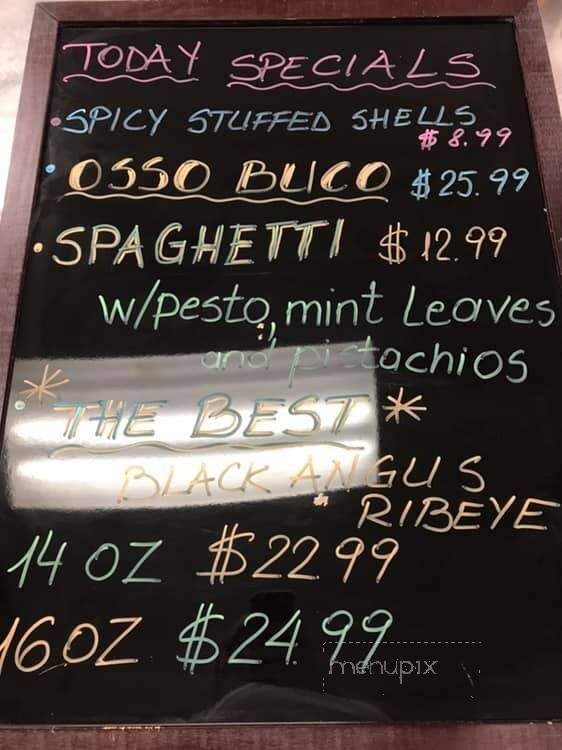 TODAY SPECIALS
• SPICY STUFFED SHELLS
$ 8.99
• OSSO BUCO $25.99
• SPAGHETTI $12.99
w/pesto, mint Leaves
and pistachios
• * THE BEST *
BLACK ANGUS
RIBEYE
14 OZ $22 99
16 OZ $24 99
menupix